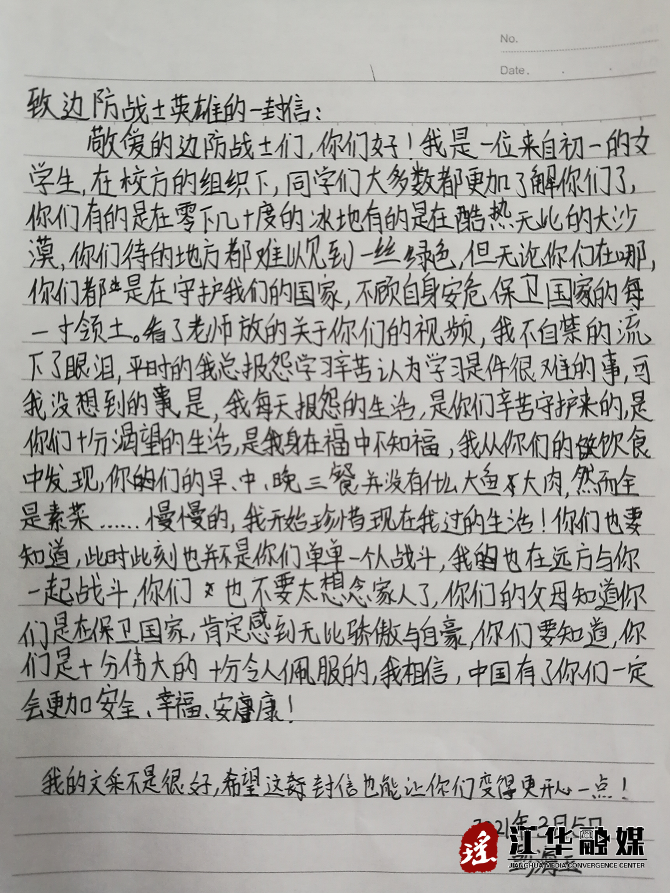 No.
Date.
致边防战士英雄的一封信：
敬爱的边防战士们，你们好！我是一位来自初一的文
学生，在校方的组织下，同学们大多数都更加了解你们了，
你们有的是在零下几十度的冰地有的是在酷热无比的大沙
漠，你们待的地方都难以见到一丝绿色，但无论你们在哪，
你们都是在守护我们的国家，不顾自身安危保卫国家的每
一寸领土。看了老师放的关于你们的视频，我不自禁的流
下了眼泪，平时的我总报怨学习辛苦认为学习是件很难的事，可
我没想到的事是，我每天报怨的生活，是你们辛苦守护来的，是
你们十分渴望的生活，是我身在福中不知福，我从你们的饮食
中发现，你们的早、中、晚三餐并没有什么大鱼大肉，然而全
是素菜……慢慢的，我开始珍惜现在我过的生活！你们也要
知道，此时此刻也并不是你们单单一个人战斗，我也在远方与你
一起战斗，你们也不要太想念家人了，你们的父母知道你
们是在保卫国家，肯定感到无比骄傲与自豪，你们要知道，你
们是十分伟大的十分令人佩服的，我相信，中国有了你们一定
会更加安全、幸福、安康！
我的文采不是很好，希望这封信也能让你们变得更开心一点！
2021年3月5日
瑶 江华融媒
JIANGHUA MEDIA CONVERGENCE CENTER